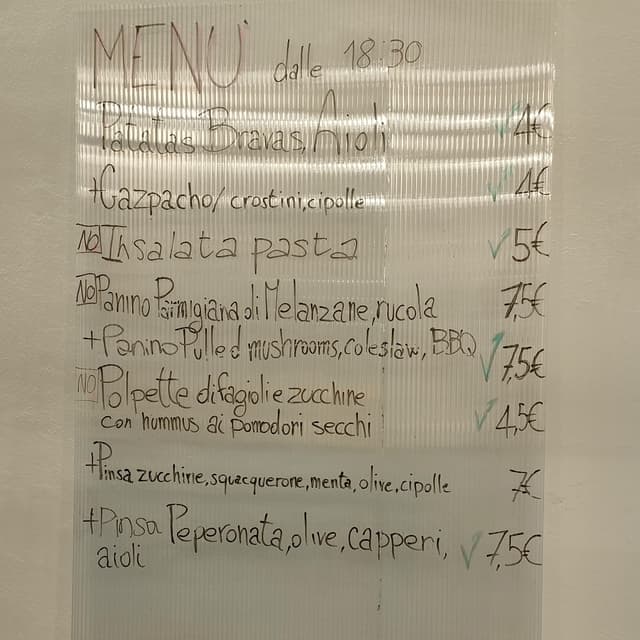 MENU' dalle 18:30
Patatas Bravas, Aioli ✓ 4€
+Gazpacho/crostini,cipolle ✓ 4€
NO Insalata pasta ✓ 5€
NO Panino Parmigiana di Melanzane, rucola 7,5€
+Panino Pulled mushrooms, coleslaw, BBQ ✓ 7,5€
NO Polpette di fagioli e zucchine
con hummus di pomodori secchi ✓ 4,5€
+Pinsa zucchine, squacquerone, menta, olive, cipolle 7€
+Pinsa Peperonata, olive, capperi, ✓ 7,5€
aioli